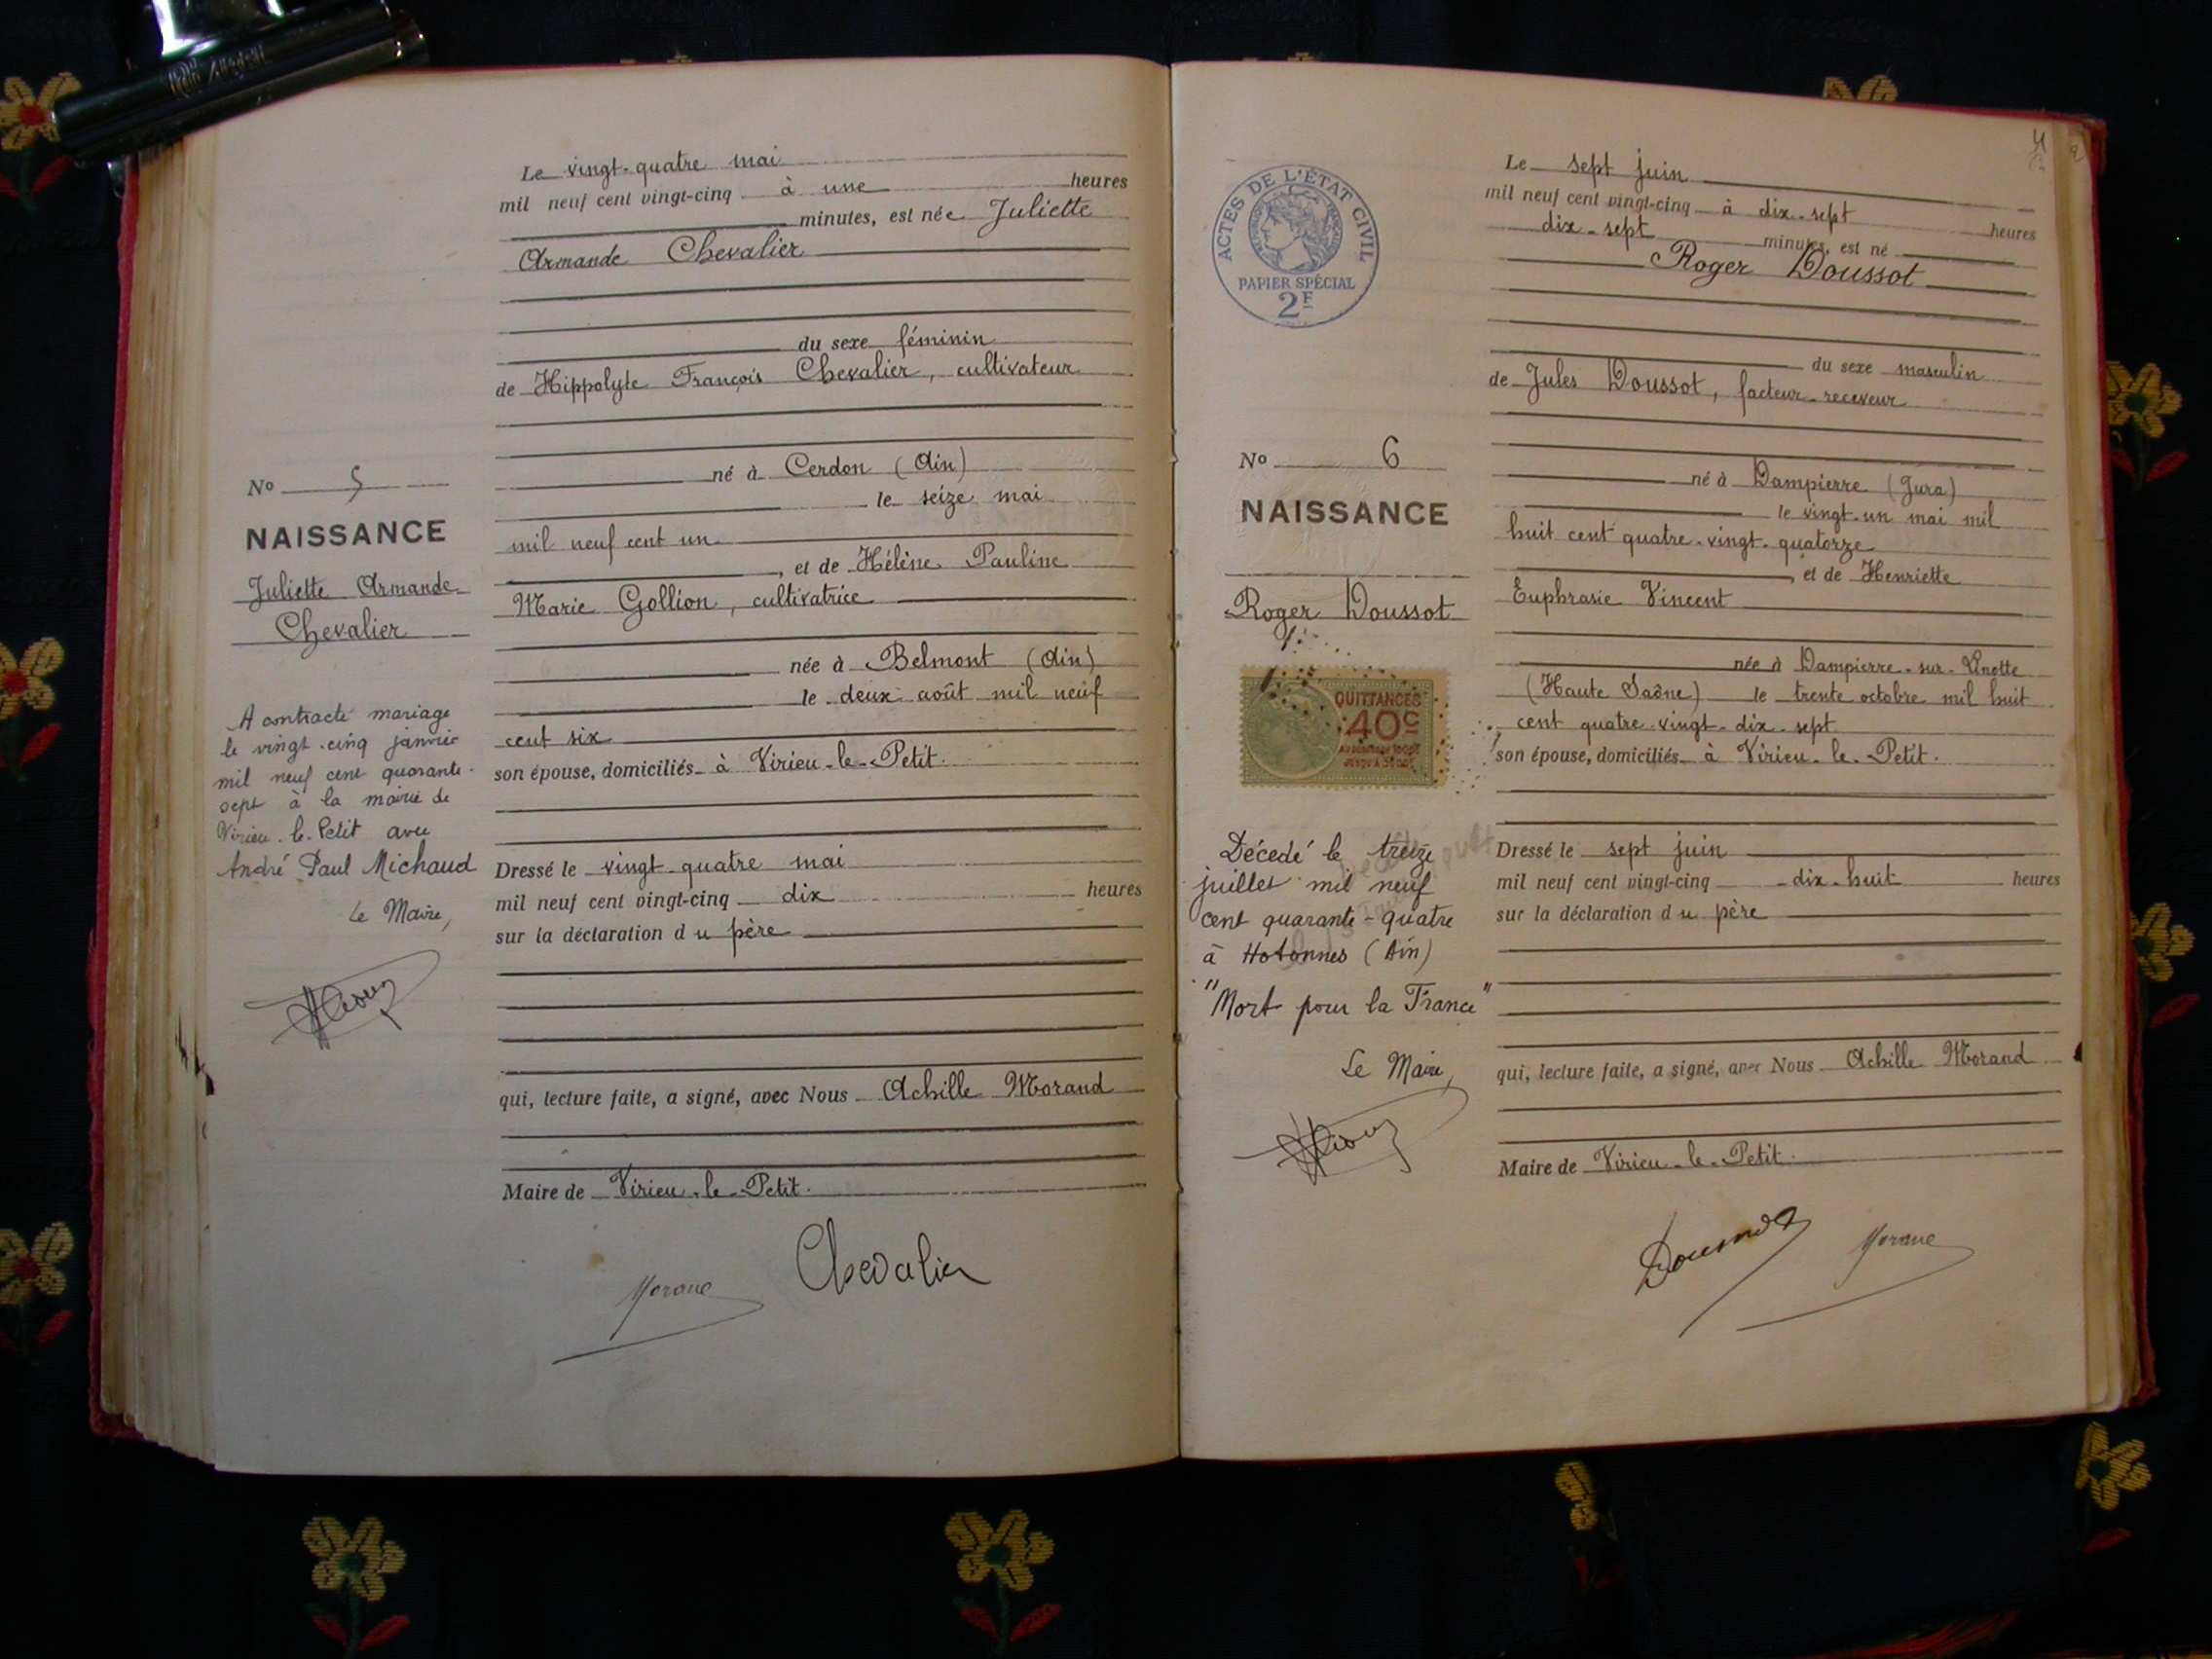 Le vingt-quatre mai
mil neuf cent vingt-cinq à une heures
minutes, est née Juliette
Armande Chevalier
du sexe féminin
de Hippolyte François Chevalier, cultivateur
né à Cerdon (Ain)
le seize mai
mil neuf cent un
, et de Hélène Pauline
Marie Gollion, cultivatrice
née à Belmont (Ain)
le deux août mil neuf
cent six
son épouse, domiciliés à Virieu-le-Petit.
Dressé le vingt-quatre mai
mil neuf cent vingt-cinq dix heures
sur la déclaration du père
qui, lecture faite, a signé, avec Nous Achille Morand
Maire de Virieu-le-Petit.
Chevalier
No 5
NAISSANCE
Juliette Armande
Chevalier
A contracté mariage
le vingt-cinq janvier
mil neuf cent quarante-
sept à la mairie de
Virieu-le-Petit avec
André Paul Michaud
Le Maire,
ACTES DE L'ÉTAT CIVIL
PAPIER SPÉCIAL
2F
No 6
NAISSANCE
Roger Doussot
QUITTANCES
40c
Décédé le treize
juillet mil neuf
cent quarante-quatre
à Hotonnes (Ain)
"Mort pour la France"
Le Maire,
Le sept juin
mil neuf cent vingt-cinq à dix-sept heures
dix-sept minutes, est né
Roger Doussot
du sexe masculin
de Jules Doussot, facteur-receveur
né à Dampierre (Jura)
le vingt-un mai mil
huit cent quatre-vingt-quatorze
, et de Henriette
Euphrasie Vincent
née à Dampierre-sur-Linotte
(Haute Saône) le trente octobre mil huit
cent quatre-vingt-dix-sept
son épouse, domiciliés à Virieu-le-Petit.
Dressé le sept juin
mil neuf cent vingt-cinq dix-huit heures
sur la déclaration du père
qui, lecture faite, a signé, avec Nous Achille Morand
Maire de Virieu-le-Petit.